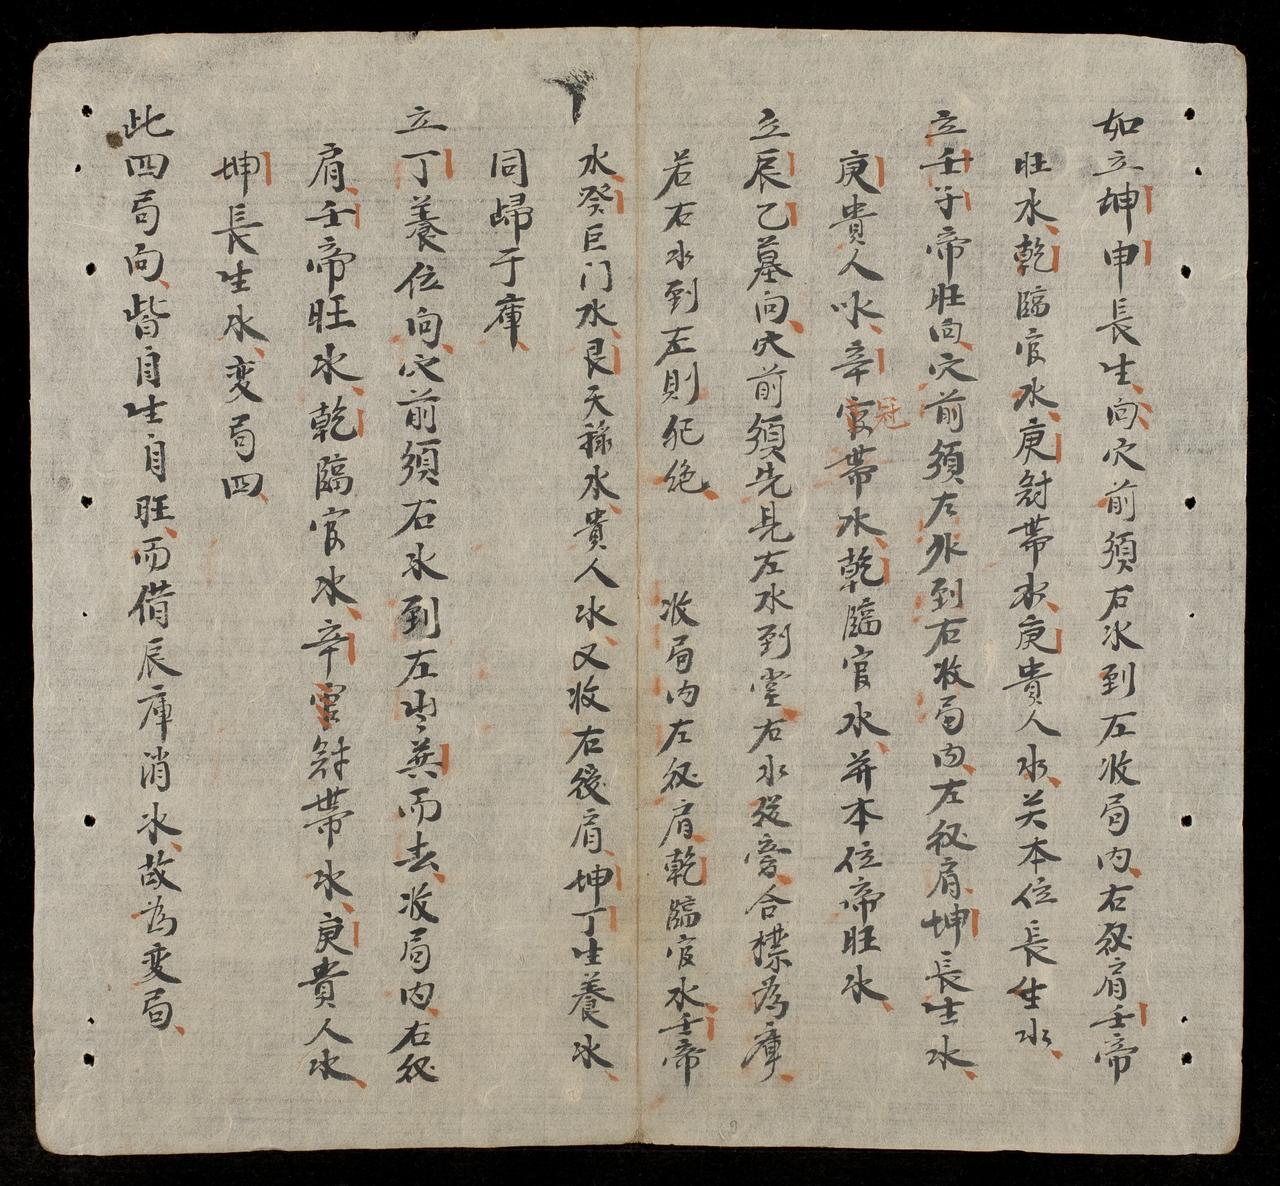 如立坤申長生向穴前須右水到左收局内右後肩壬帝
旺水乾臨官水庚冠帶水庚貴人水关本位長生水
立壬子帝旺向穴前須左水到右收局内左後肩坤長生水
庚貴人水辛官帶水乾臨官水并本位帝旺水
冠
立辰乙墓向穴前須先見左水到堂右水後合襟為庫
若右水到左則犯絶 收局内左後肩乾臨官水壬帝
水癸巨门水艮天祿水貴人水又收右後肩坤丁生養水
同歸于庫
立丁養位向穴前須右水到左巽而去收局内右後
肩壬帝旺水乾臨官水辛冠帶水庚貴人水
坤長生水变局四
此四局向皆自生自旺而借辰庫消水故為变局